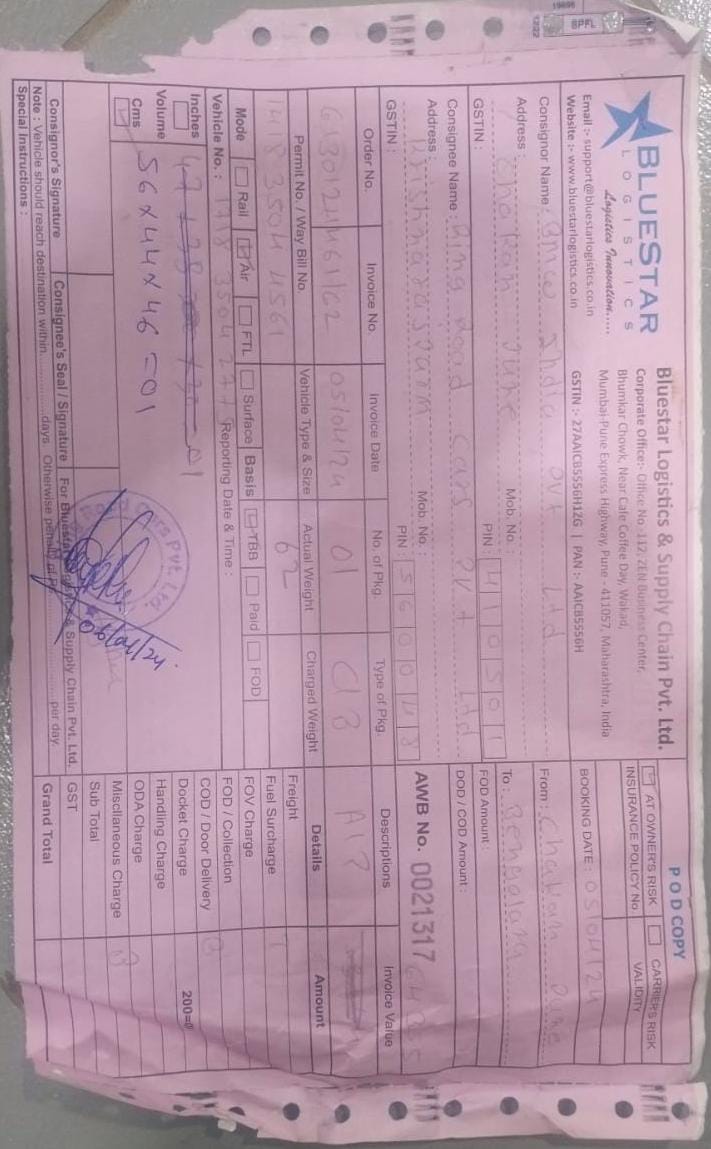 BLUESTAR
LOGISTICS
Logistics Innovation.....
Email :- support@bluestarlogistics.co.in
Website :- www.bluestarlogistics.co.in
Bluestar Logistics & Supply Chain Pvt. Ltd.
Corporate Office:- Office No -112, ZEN Business Center,
Bhumkar Chowk, Near Cafe Coffee Day, Wakad,
Mumbai-Pune Express Highway, Pune - 411057, Maharashtra, India
GSTIN :- 27AAICB5556H1ZG | PAN :- AAICB5556H
POD COPY
AT OWNER'S RISK CARRIER'S RISK
INSURANCE POLICY No. VALIDITY
BOOKING DATE : 05/04/24
Consignor Name : BMW India Pvt Ltd
Address : Chakan Pune
Mob. No. :
GSTIN :
PIN : 410501
From : Chakan Pune
To : Bengaluru
FOD Amount :
DOD / COD Amount :
Consignee Name : Ring Road Cars Pvt Ltd
Address :
Mob. No. :
GSTIN :
PIN : 560048
AWB No. 0021317
Order No. Invoice No. Invoice Date No. of Pkg. Type of Pkg. Descriptions Invoice Value
05/04/24 01 CB
Permit No. / Way Bill No. Vehicle Type & Size Actual Weight Charged Weight Details Amount
1418 3504 4561 62
Mode Rail Air FTL Surface Basis TBB Paid FOD
Vehicle No. : Reporting Date & Time :
Inches
Volume
56x44x46=01
Cms
Freight
Fuel Surcharge
FOV Charge
FOD / Collection
COD / Door Delivery
Docket Charge 200=0
Handling Charge
ODA Charge
Miscllaneous Charge
Sub Total
GST
Grand Total
Pvt. Ltd.
06/04/24.
Consignor's Signature Consignee's Seal / Signature For Bluestar Logistics & Supply Chain Pvt. Ltd.
Note : Vehicle should reach destination within..................days. Otherwise penalty of per day.
Special Instructions :